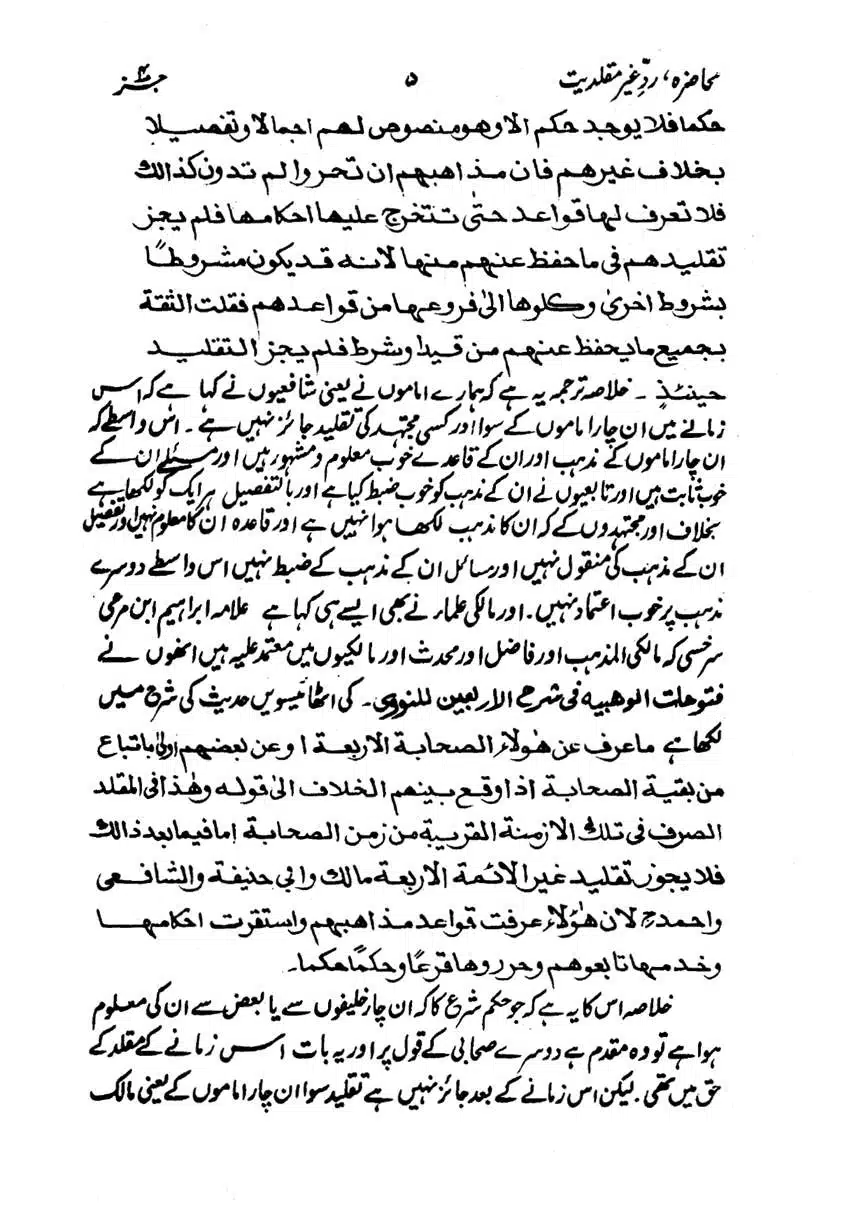 محاضرہ، ردِّ غیر مقلدیت ۵ جزء
حكما فلا يوجد حكم الا وهو منصوص لهم اجمالا وتفصيلا
بخلاف غيرهم فان مذاهبهم ان تحروا لم تدون كذالك
فلا تعرف لها قواعد حتىٰ تتخرج عليها احكامها فلم يجز
تقليدهم فى ما حفظ عنهم منها لانه قد يكون مشروطًا
بشروط اخرىٰ وكلوها الىٰ فروعها من قواعدهم فقلت الثقة
بجميع ما يحفظ عنهم من قيد او شرط فلم يجز التقليد
حينئذٍ ۔ خلاصہ ترجمہ یہ ہے کہ ہمارے اماموں نے یعنی شافعیوں نے کہا ہے کہ اس
زمانے میں ان چار اماموں کے سوا اور کسی مجتہد کی تقلید جائز نہیں ہے ۔ اس واسطے کہ
ان چار اماموں کے مذہب اور ان کے قاعدے خوب معلوم و مشہور ہیں اور مسئلے ان کے
خوب ثابت ہیں اور تابعیوں نے ان کے مذہب کو خوب ضبط کیا ہے اور بالتفصیل ہر ایک کو لکھا ہے
بخلاف اور مجتہدوں کے کہ ان کا مذہب لکھا ہوا نہیں ہے اور قاعدہ ان کا معلوم نہیں اور تفصیل
ان کے مذہب کی منقول نہیں اور مسائل ان کے مذہب کے ضبط نہیں اس واسطے دوسرے
مذہب پر خوب اعتماد نہیں ۔ اور مالکی علماء نے بھی ایسے ہی کہا ہے علامہ ابراہیم ابن مرعی
سرخسی کہ مالکی المذہب اور فاضل اور محدث اور مالکیوں میں معتمد علیہ ہیں انھوں نے
فتوحات الوهبيه فى شرح الاربعين للنووى۔ کی اٹھائیسویں حدیث کی شرح میں
لکھا ہے ما عرف عن هٰولاء الصحابة الاربعة او عن بعضهم اولىٰ باتباع
من بقية الصحابة اذا وقع بينهم الخلاف الىٰ قوله وهٰذا فى المقلد
الصرف فى تلك الازمنة القريبة من زمن الصحابة اما فيما بعد ذالك
فلا يجوز تقليد غير الائمة الاربعة مالك وابى حنيفة والشافعى
واحمدؒ لان هٰؤلاء عرفت قواعد مذاهبهم واستقرت احكامها
وخدمها تابعوهم وحرروها فرعًا وحكمًا حكما۔
خلاصہ اس کا یہ ہے کہ جو حکم شرع کا کہ ان چار خلیفوں سے یا بعض سے ان کی معلوم
ہوا ہے تو وہ مقدم ہے دوسرے صحابی کے قول پر اور یہ بات اس زمانے کے مقلد کے
حق میں تھی ۔ لیکن اس زمانے کے بعد جائز نہیں ہے تقلید سوا ان چار اماموں کے یعنی مالک